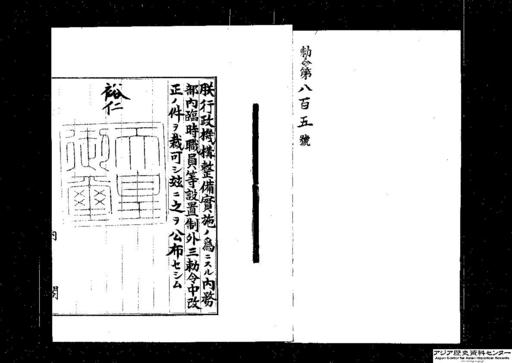 勅令第八百五號
朕行政機構整備實施ノ爲ニスル內務
部內臨時職員等設置制外三勅令中改
正ノ件ヲ裁可シ玆ニ之ヲ公布セシム
裕仁
天皇御璽
內 閣
アジア歴史資料センター
Japan Center for Asian Historical Records